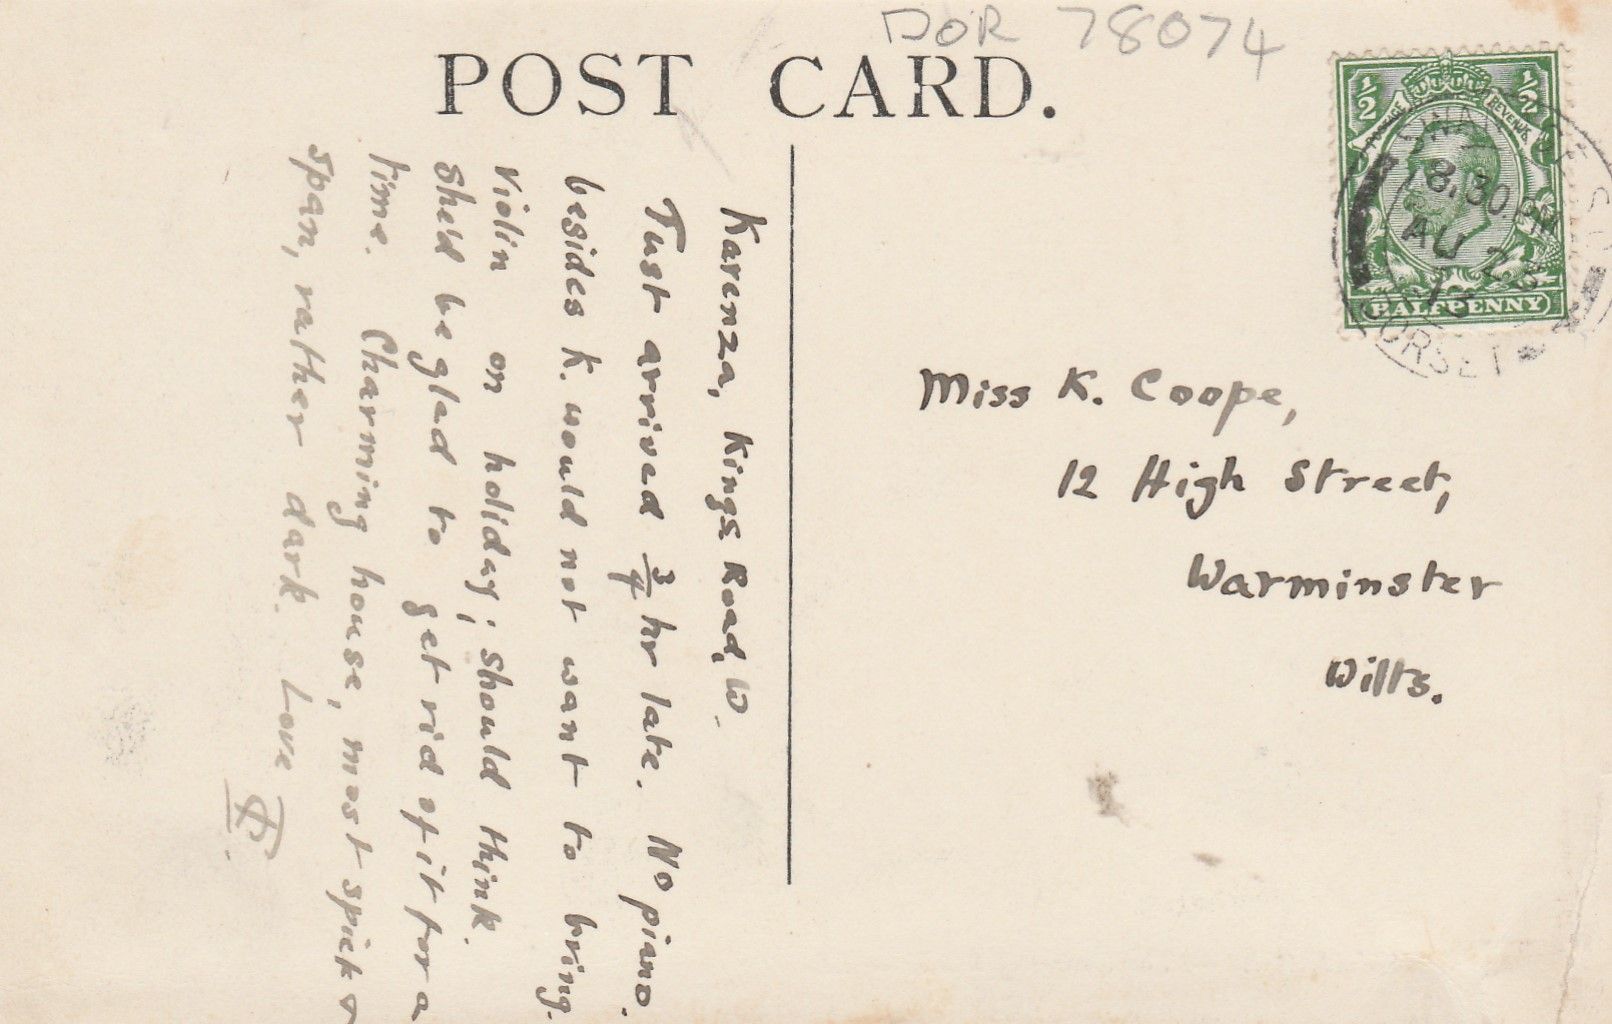 DOR 78074
POST CARD.
Karenza, Kings Road, W.
Just arrived 3/4 hr late. No piano.
besides K. would not want to bring
violin on holiday; should think
she'd be glad to get rid of it for a
time. Charming house, most spick &
span, rather dark. Love
Miss K. Coope,
12 High Street,
Warminster
Wilts.
1/2 1/2
POSTAGE REVENUE
HALFPENNY
8.30 PM
AU 23
13
DORSET